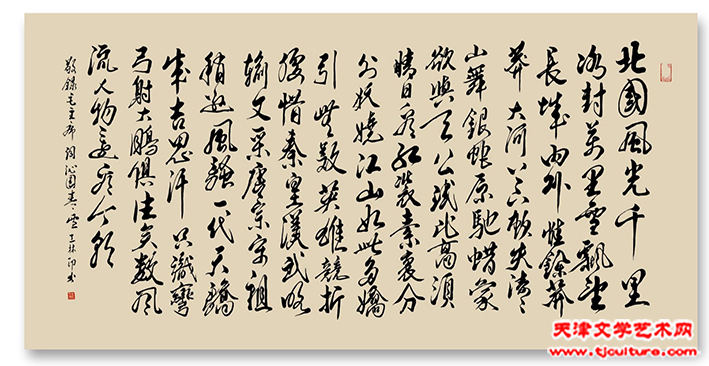 北國風光千里
冰封萬里雪飄望
長城內外惟餘莽
莽大河上下頓失滔々
山舞銀蛇原馳蜡象
欲與天公試比高須
晴日看紅裝素裹分
外妖嬈江山如此多嬌
引無數英雄競折
腰惜秦皇漢武略
輸文采唐宗宋祖
稍遜風騷一代天驕
成吉思汗只識彎
弓射大鵰俱往矣數風
流人物還看今朝
敬錄毛主席詞沁園春雪
天津文学艺术网
www.tjculture.com